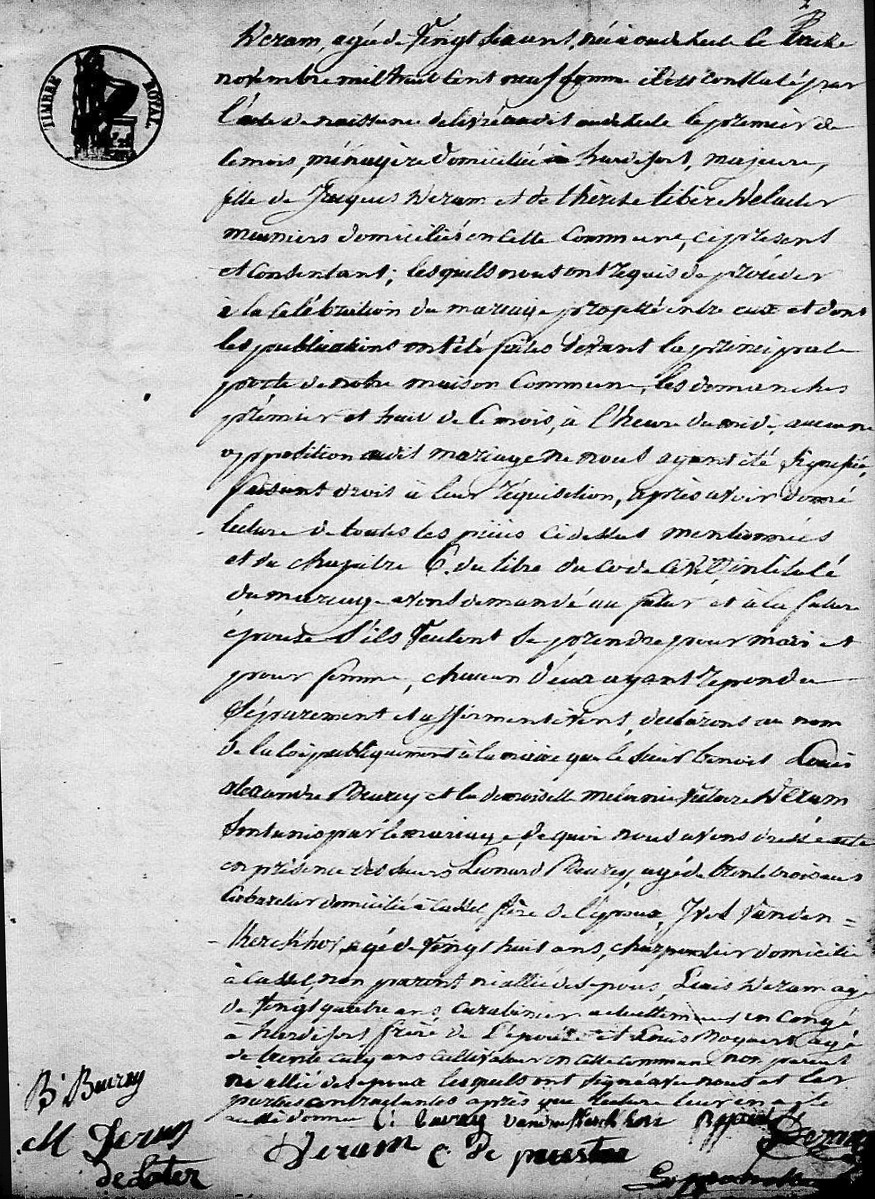 TIMBRE ROYAL
Deram, agée de Vingt deux ans, née à oudezeele le treize
novembre mil huit cent neuf comme il est constaté par
l'acte de naissance delivré audit oudezeele le premier de
ce mois, ménagère domiciliée à hardifort, majeure,
fille de Jacques Deram et de thérèse libère Delater
meuniers domiciliés en cette Commune, ci présent
et Consentant; lesquels nous ont requis de procéder
à la Célébration du mariage projetté entre eux et dont
les publications ont été faites devant la principale
porte de notre maison Commune, les dimanches
premier et huit de ce mois, à l'heure de midi, aucune
opposition audit mariage ne nous ayant été signifiée,
faisant droit à leur réquisition, après avoir donné
lecture de toutes les pièces ci dessus mentionnées
et du chapitre 6. du titre du code civil intitulé
du mariage avons demandé au futur et à la future
épouse s'ils veulent se prendre pour mari et
pour femme, chacun d'eux ayant répondu
séparement et affirmativement, declarons au nom
de la loi publiquement à la mairie que le sieur benoit Louis
alexandre Beurey et la demoiselle melanie Deram
sont unis par le mariage, de quoi nous avons dressé acte
en présence des sieurs Léonard Beurey, agé de trente trois ans
Cabaretier domicilié à Cassel frère de l'époux, Yves Vanden=
Kerckhove, agé de Vingt huit ans, charpentier domicilié
à Cassel, non parent ni allié des époux, Louis Deram agé
de Vingt quatre ans Carabinier actuellement en Congé
à hardifort frère de L'épouse et Louis Bogaert agé
de trente cinq ans cultivateur en cette commune non parent
ni allié des époux lesquels ont signé avec nous et les
parties contractantes après que lecture leur en a été
donnée
B. Beurey
M Deram
Deram C De
delater
Deram